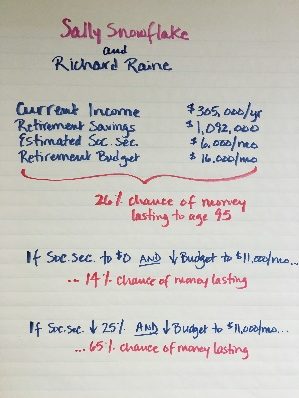 Sally Snowflake
and
Richard Raine
Current Income $305,000/yr
Retirement Savings $1,092,000
Estimated Soc. Sec. $6,000/mo
Retirement Budget $16,000/mo
26% chance of money
lasting to age 95
If Soc. Sec. to $0 AND ↓ Budget to $11,000/mo...
... 14% chance of money lasting
If Soc. Sec. ↓ 25% AND ↓ Budget to $11,000/mo...
... 65% chance of money lasting